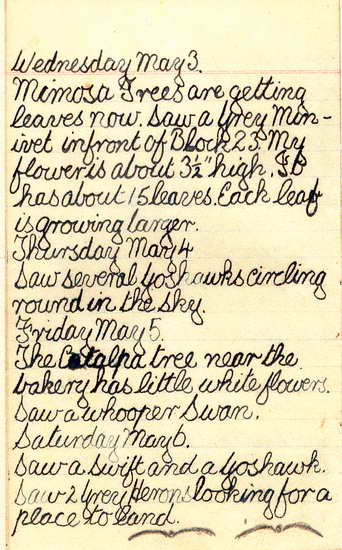 Wednesday May 3.
Mimosa Trees are getting
leaves now. Saw a Grey Min-
ivet infront of Block 23. My
flower is about 3½" high. It
has about 15 leaves. Each leaf
is growing larger.
Thursday May 4
Saw several Goshawks circling
round in the sky.
Friday May 5.
The Catalpa tree near the
bakery has little white flowers.
Saw a whooper Swan.
Saturday May 6.
Saw a Swift and a Goshawk.
Saw 2 Grey Herons looking for a
place to land.